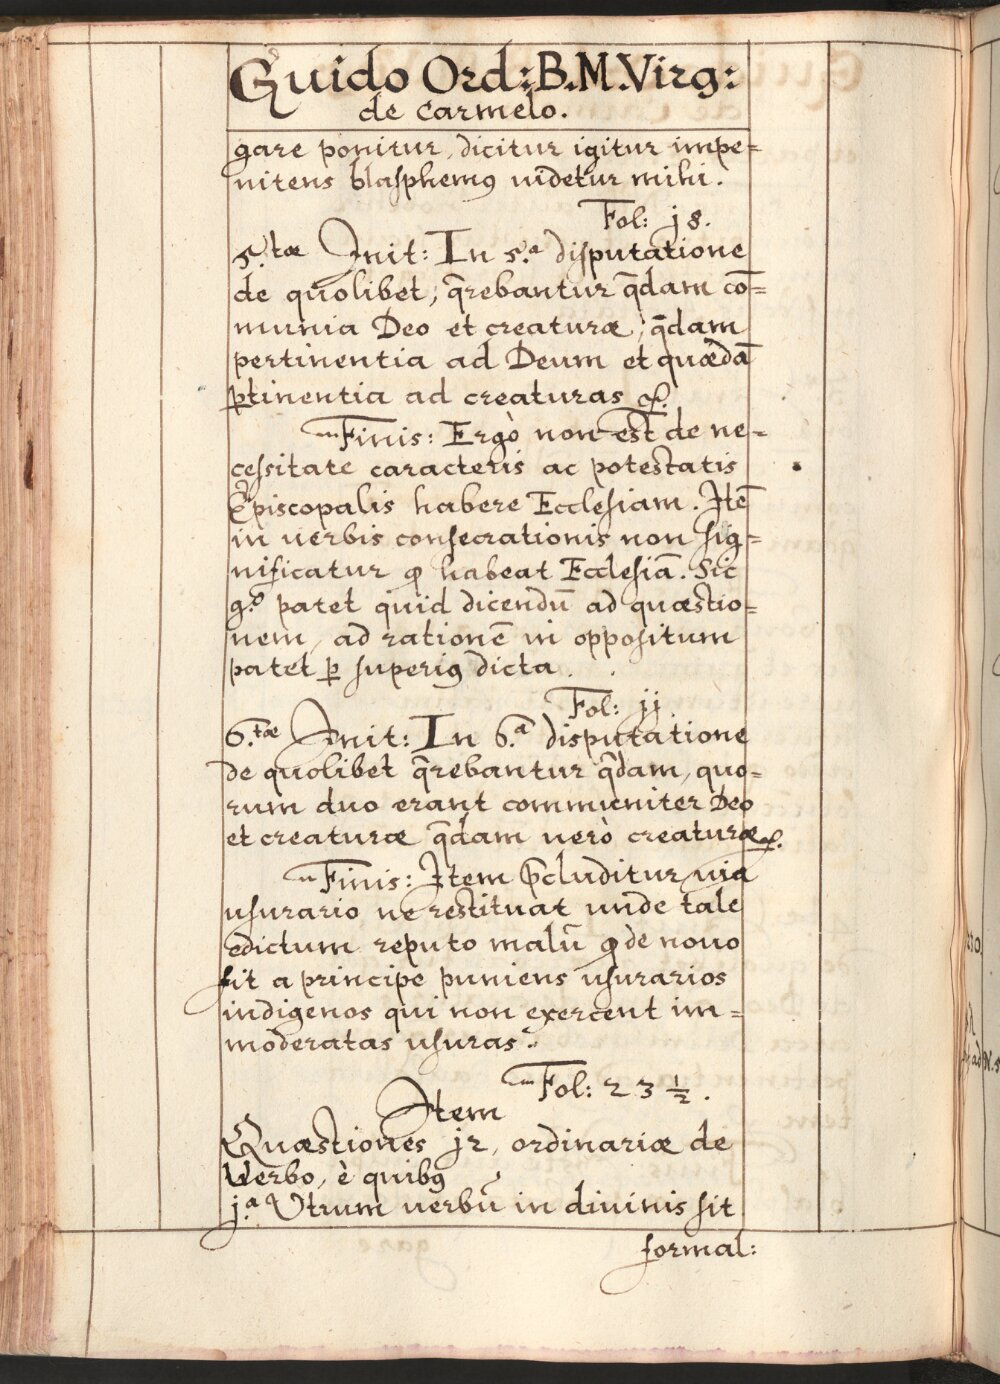 Guido Ord: B.M. Virg:
de Carmelo.
gare ponitur, dicitur igitur impe=
nitens blasphemꝯ videtur mihi.
Fol: j8.
5.tæ Init: In 5.a disputatione
de quolibet, q̄rebantur q̄dam cō=
munia Deo et creaturæ, q̄dam
pertinentia ad Deum et quædā
ꝑtinentia ad creaturas &.
Finis: Ergò non est de ne=
cessitate caracteris ac potestatis
Episcopalis habere Ecclesiam. Itē
in uerbis consecrationis non sig=
nificatur ꝙ habeat Ecclesiā. Sic
g.o patet quid dicendū ad quæstio=
nem, ad rationē in oppositum
patet ꝑ superiꝯ dicta.
Fol: jj.
6.tæ Init: In 6.a disputatione
de quolibet q̄rebantur q̄dam, quo=
rum duo erant communiter Deo
et creaturæ q̄dam uerò creaturæ &.
Finis: Item p̄cluditur uia
usurario ne restituat unde tale
edictum reputo malū ꝙ de nouo
fit a principe puniens usurarios
indigenos qui non exercent im=
moderatas usuras.
Fol: 23 ½.
Item
Quæstiones j2, ordinariæ de
Verbo, è quibꝯ
j.a Utrum uerbū in diuinis sit
formal: